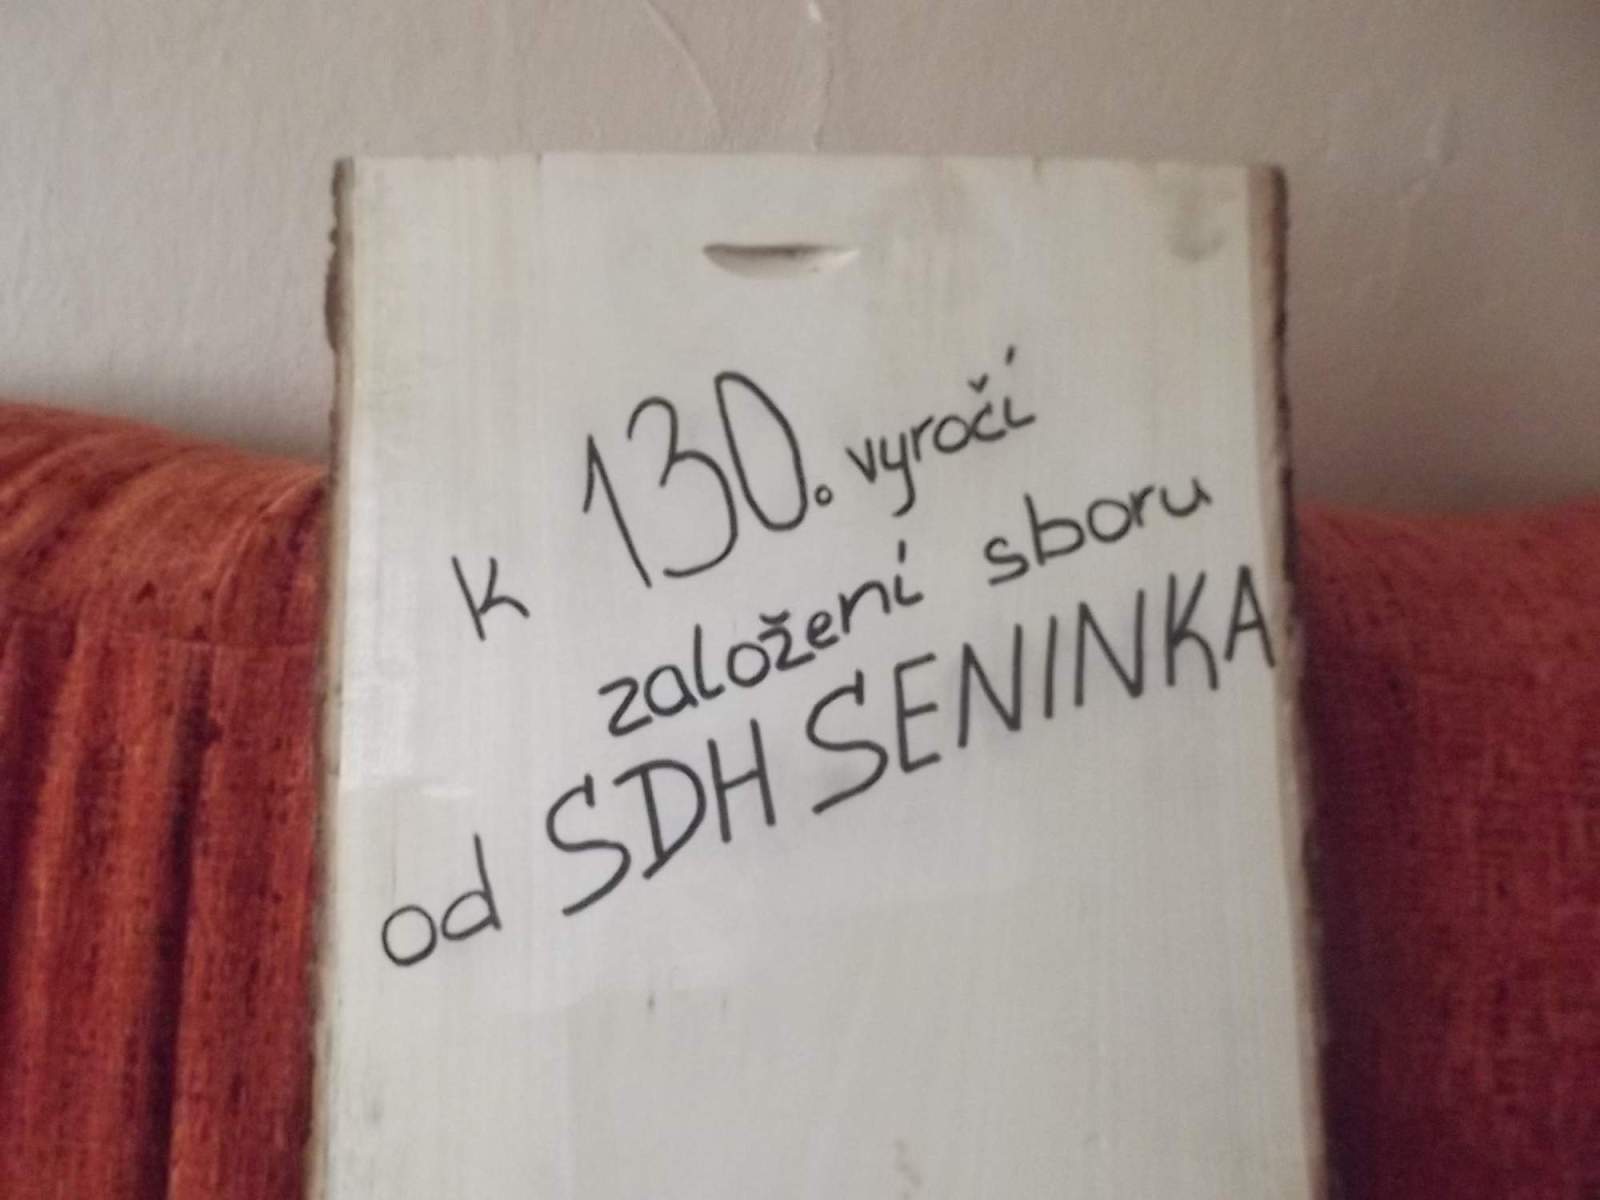 k 130. vyročí
založení sboru
od SDH SENINKA